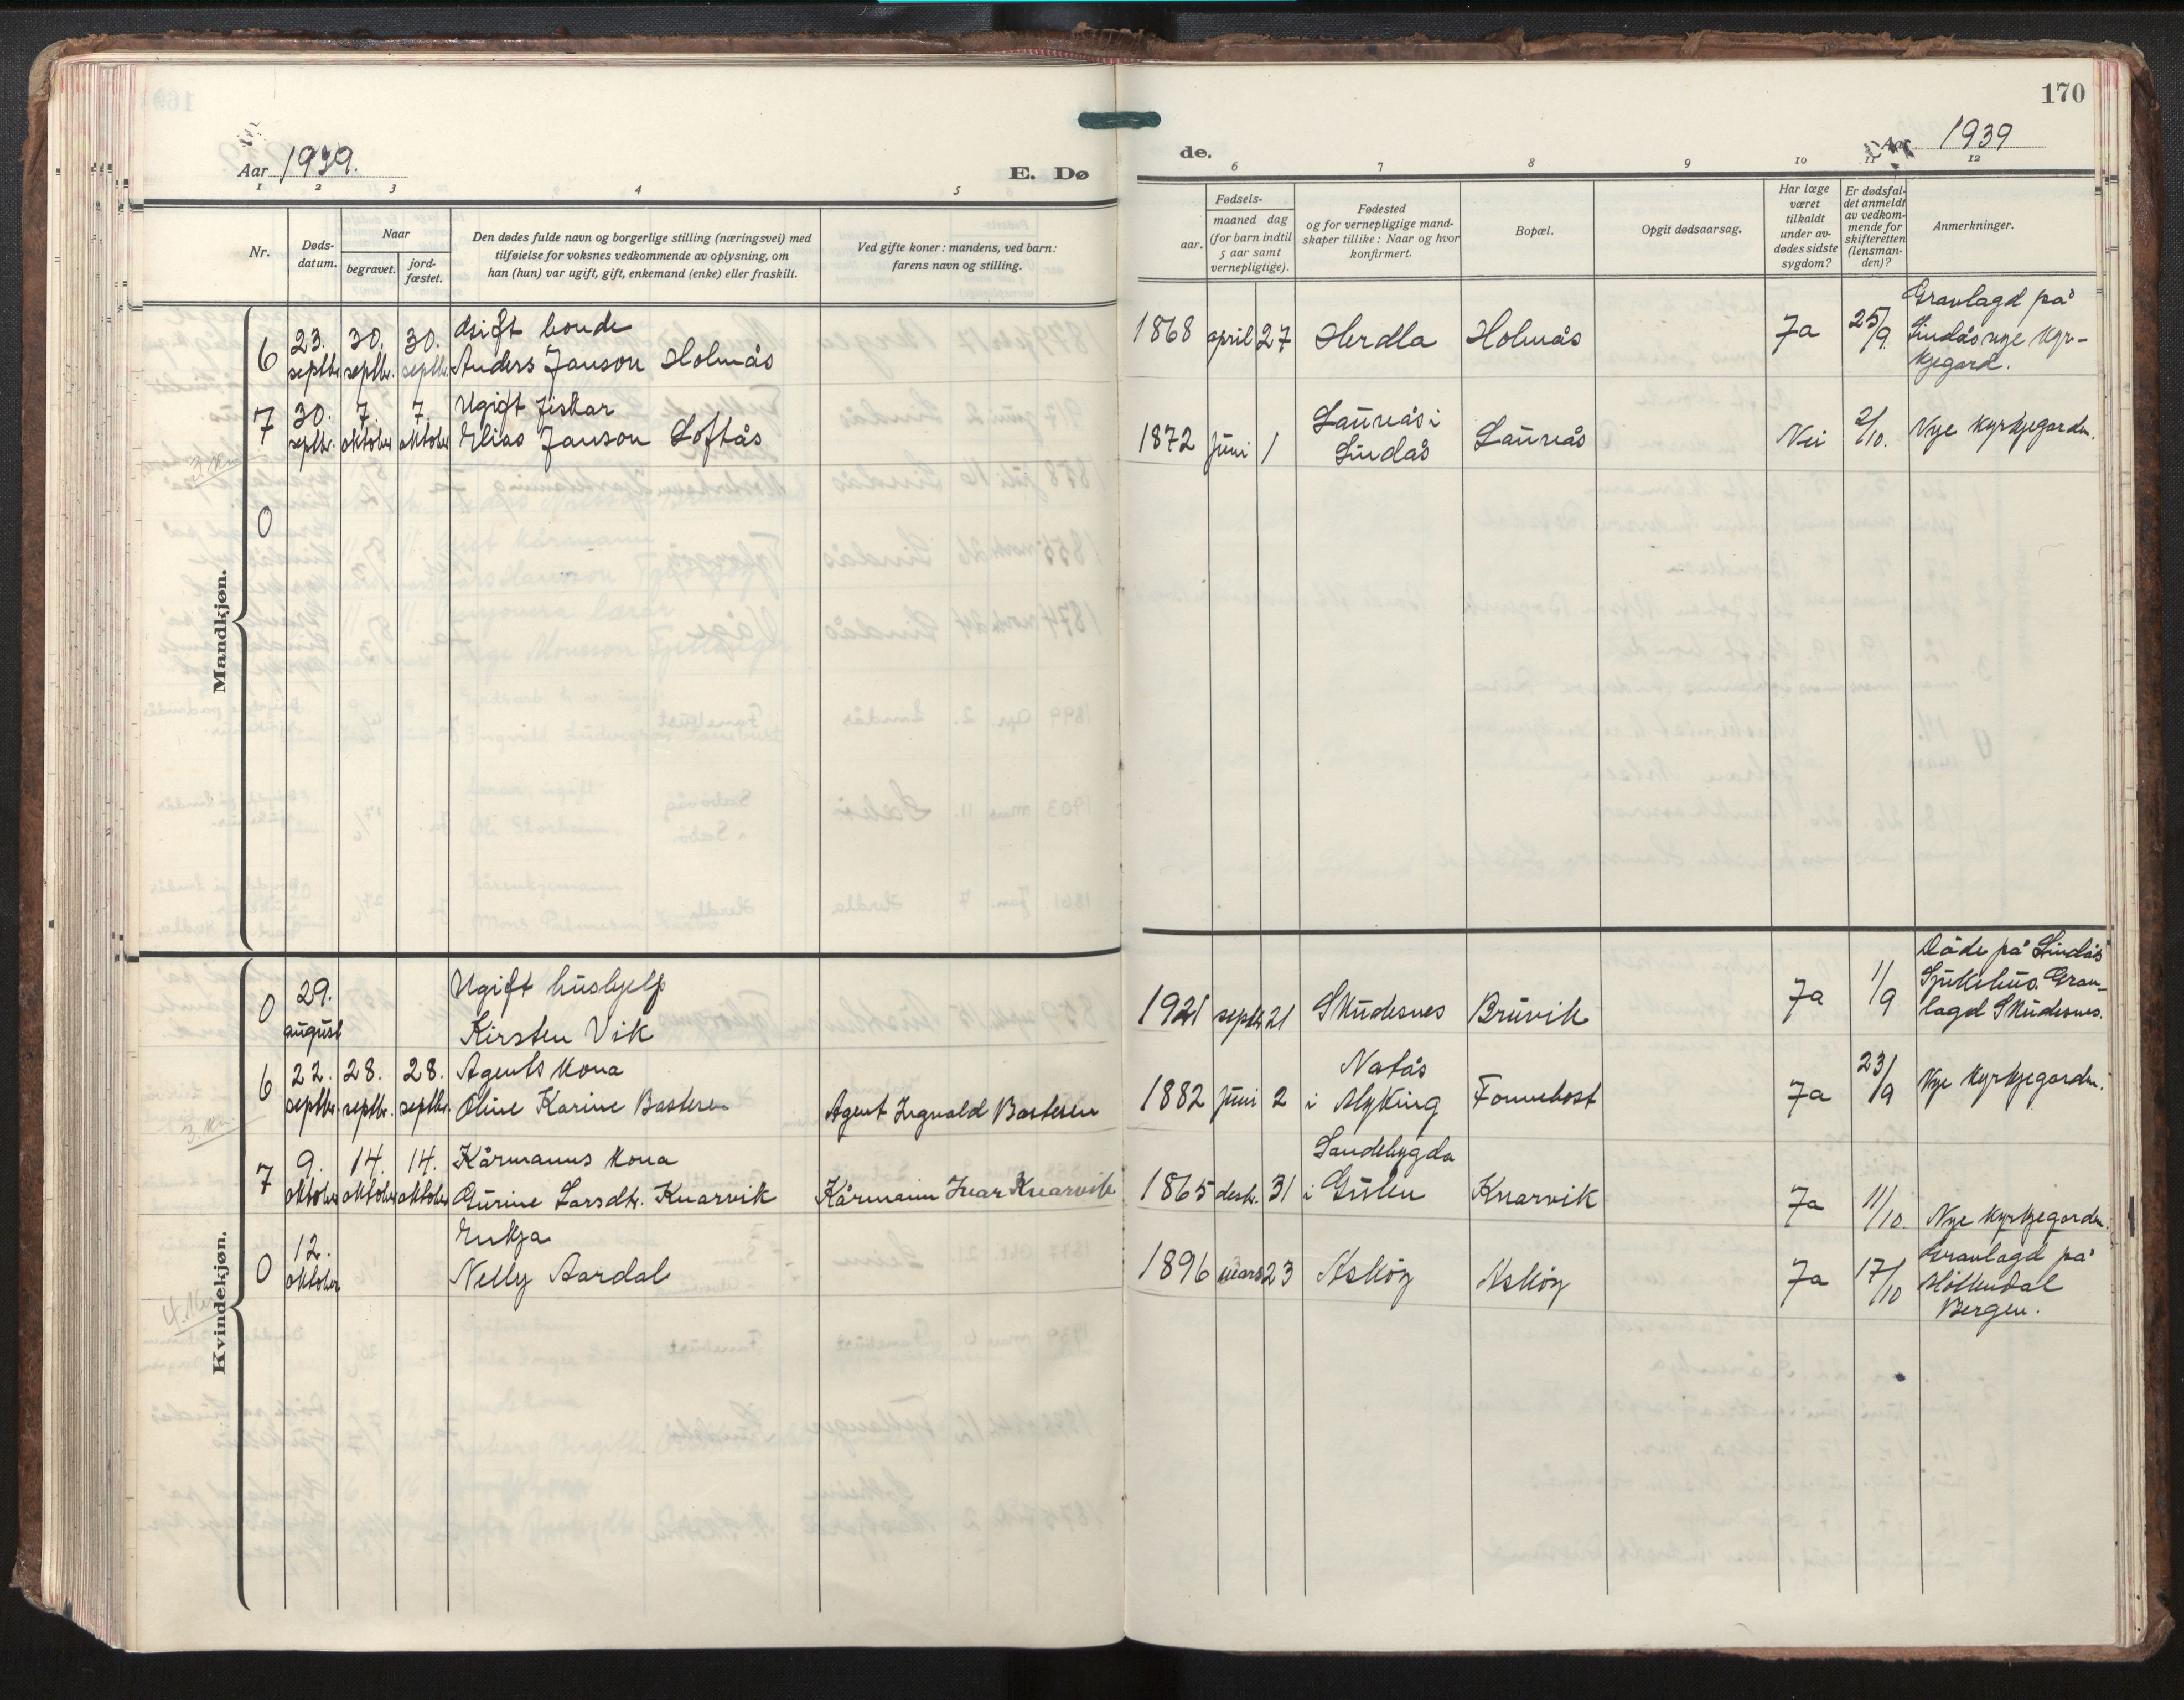 Aar 1939.
E. Dø
1 2 3 4 5
Nr.
Døds-
datum.
Naar
begravet.
jord-
fæstet.
Den dødes fulde navn og borgerlige stilling (næringsvei) med
tilføielse for voksnes vedkommende av oplysning, om
han (hun) var ugift, gift, enkemand (enke) eller fraskilt.
Ved gifte koner: mandens, ved barn:
farens navn og stilling.
Mandkjøn.
6 23. septbr. 30. septbr. 30. septbr. Gift bonde
Anders Janson Holmås
7 30. septbr. 7. oktober 7. oktober Ugift fiskar
Elias Janson Loftås
0
Kvindekjøn.
0 29. august Ugift hushjelp
Kirsten Vik
6 22. septbr. 28. septbr. 28. septbr. Agents kona
Oline Karine Bastesen Agent Ingvald Bastesen
3. kv.
7 9. oktober 14. oktober 14. oktober Kårmanns kona
Gurine Larsdtr. Knarvik Kårmann Ivar Knarvik
0 12. oktober Enkja
Nelly Aardal
170
de.
Aar 1939
6 7 8 9 10 11 12
aar.
Fødsels-
maaned dag
(for barn indtil
5 aar samt
vernepligtige).
Fødested
og for vernepligtige mand-
skaper tillike: Naar og hvor
konfirmert.
Bopæl.
Opgit dødsaarsag.
Har læge
været
tilkaldt
under av-
dødes sidste
sygdom?
Er dødsfal-
det anmeldt
av vedkom-
mende for
skifteretten
(lensman-
den)?
Anmerkninger.
1868 april 27 Herdla Holmås Ja 25/9. Gravlagd på
Lindås nye kyr-
kjegard.
1872 juni 1 Laurås i
Lindås Laurås Nei 2/10. Nye kyrkjegarden.
1921 septbr. 21 Skudesnes Bruvik Ja 1/9 Døde på Lindås
Sjukehus. Grav-
lagd Skudesnes.
1882 juni 2 Natås
i Myking Fonnebost Ja 23/9 Nye kyrkjegarden.
1865 desbr. 31 Sandebygda
i Gulen Knarvik Ja 11/10. Nye kyrkjegarden.
1896 mars 23 Askøy Askøy Ja 17/10 Gravlagd på
Møllendal
Bergen.